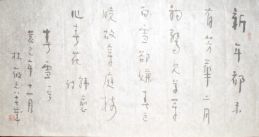 新年都未
有芳華二月
初驚見草芽
白雪卻嫌春色
晚故穿庭樹
作飛花
韓愈
春雪
年十一月